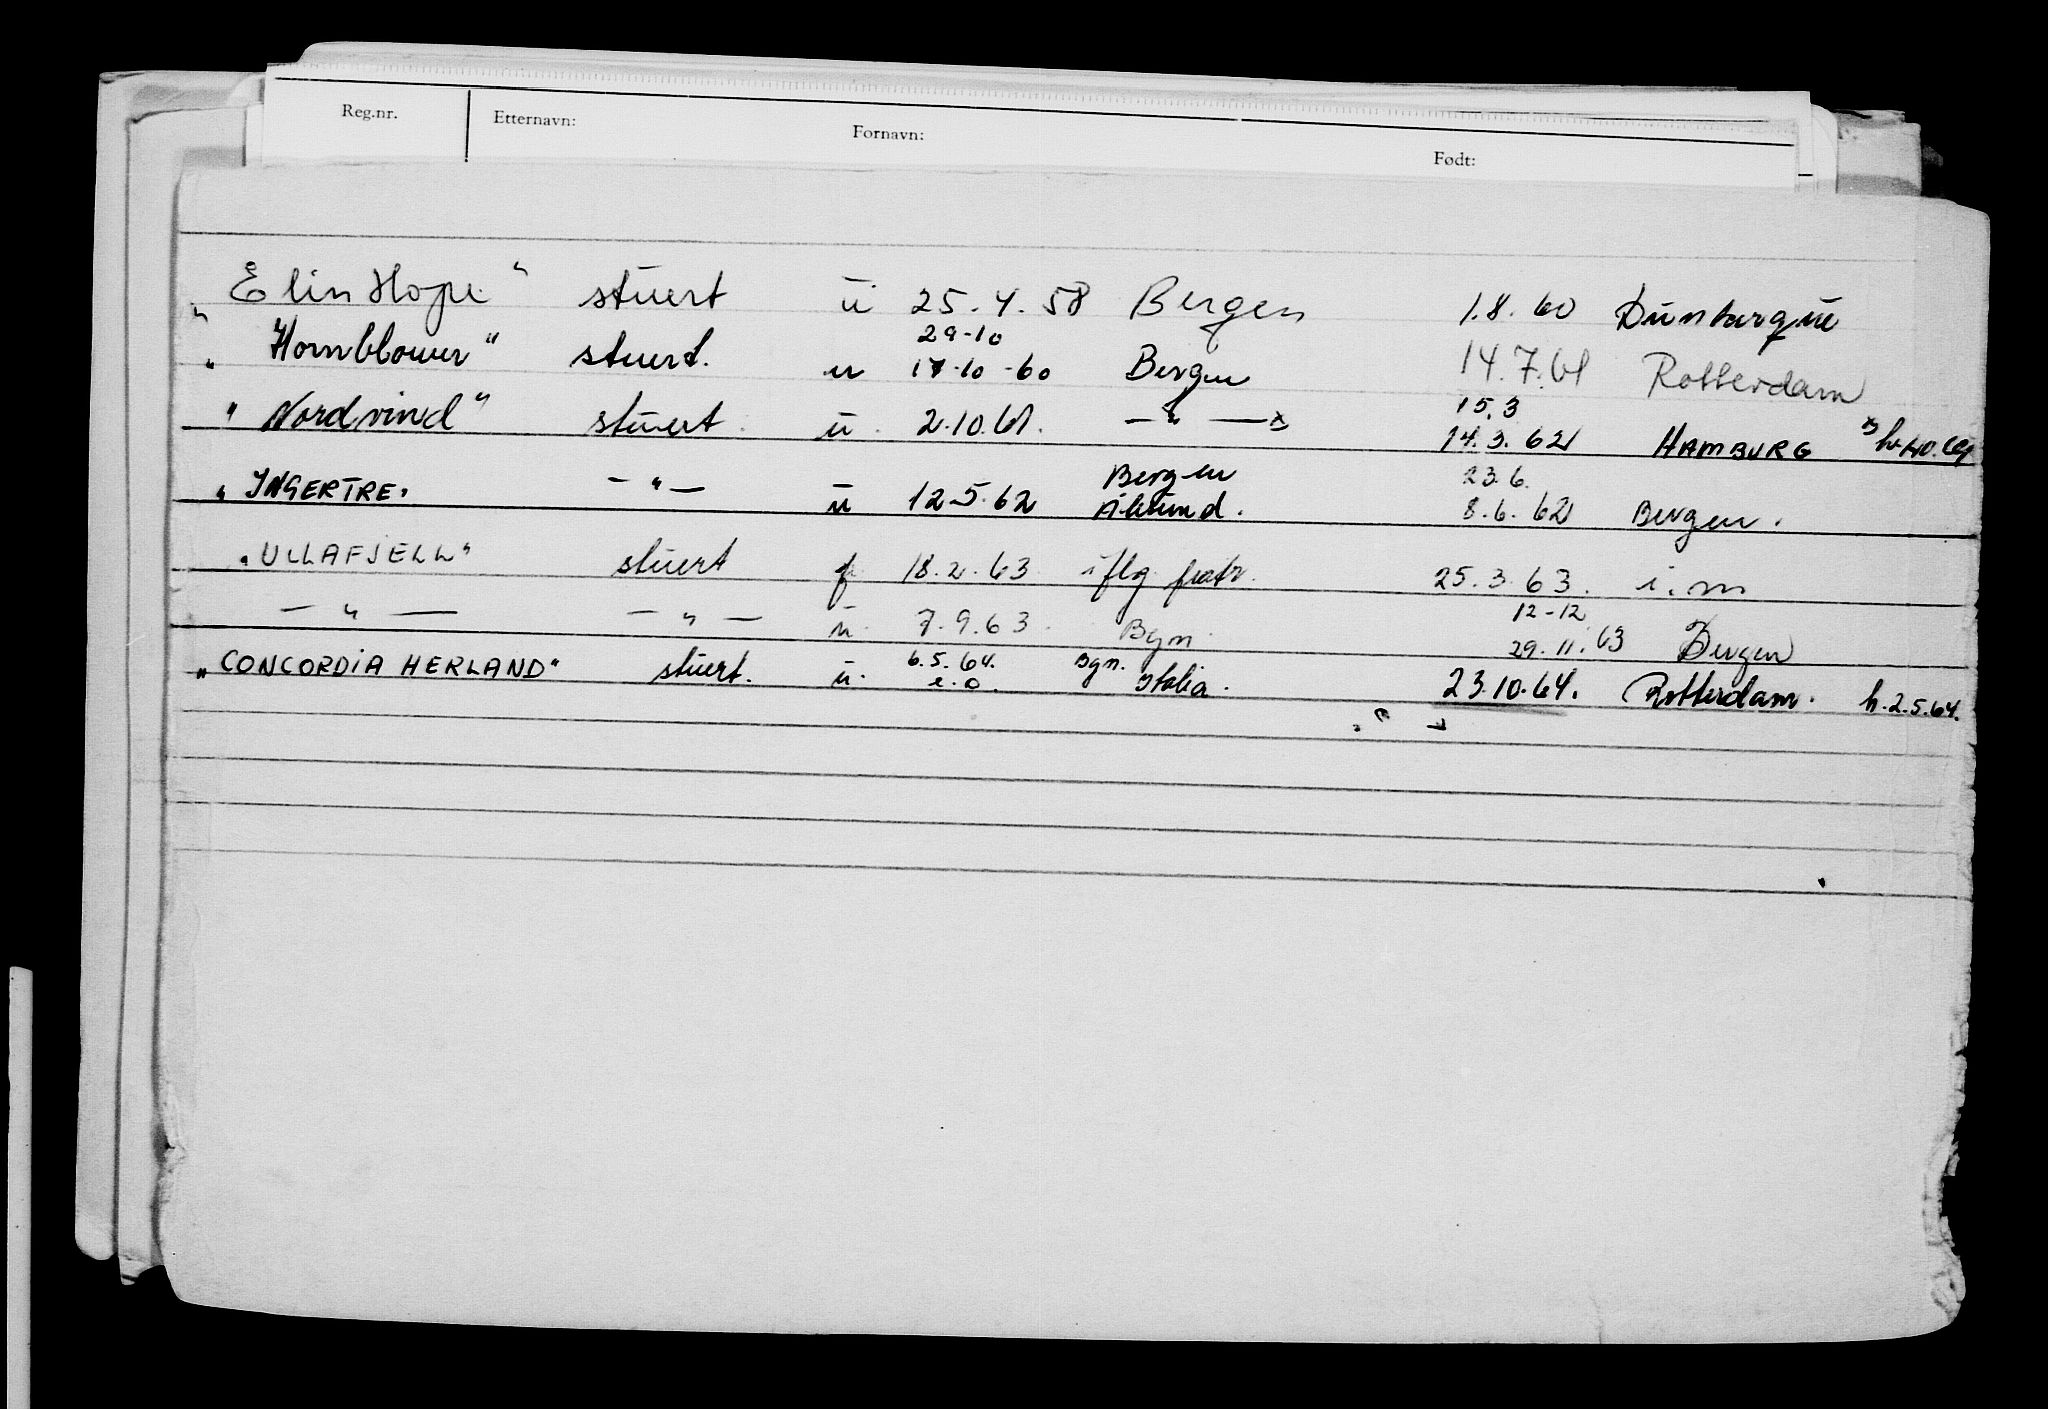 Reg.nr. Etternavn: Fornavn: Født:
"Elin Hope" stuert u 25.4.58 Bergen 1.8.60 Dunkerque
29-10
"Hornblower" stuert. u 17-10-60 Bergen 14.7.61 Rotterdam
15.3
"Nordvind" stuert u. 2.10.61. — " — x 14.3.62 HAMBURG x
Bergen 23.6.
"INGERTRE" — " — u 12-5.62 Ålesund. 8.6.62 Bergen.
"ULLAFJELL" stuert f 18.2.63 iflg. 25.3.63. i.m
12-12
— " — — " — u. 7.9.63. Bgn. 29.11.63 Bergen
6.5.64. Bgn.
"CONCORDIA HERLAND" stuert. u. e.o. Italia. 23.10.64. Rotterdam. h.2.5.64.